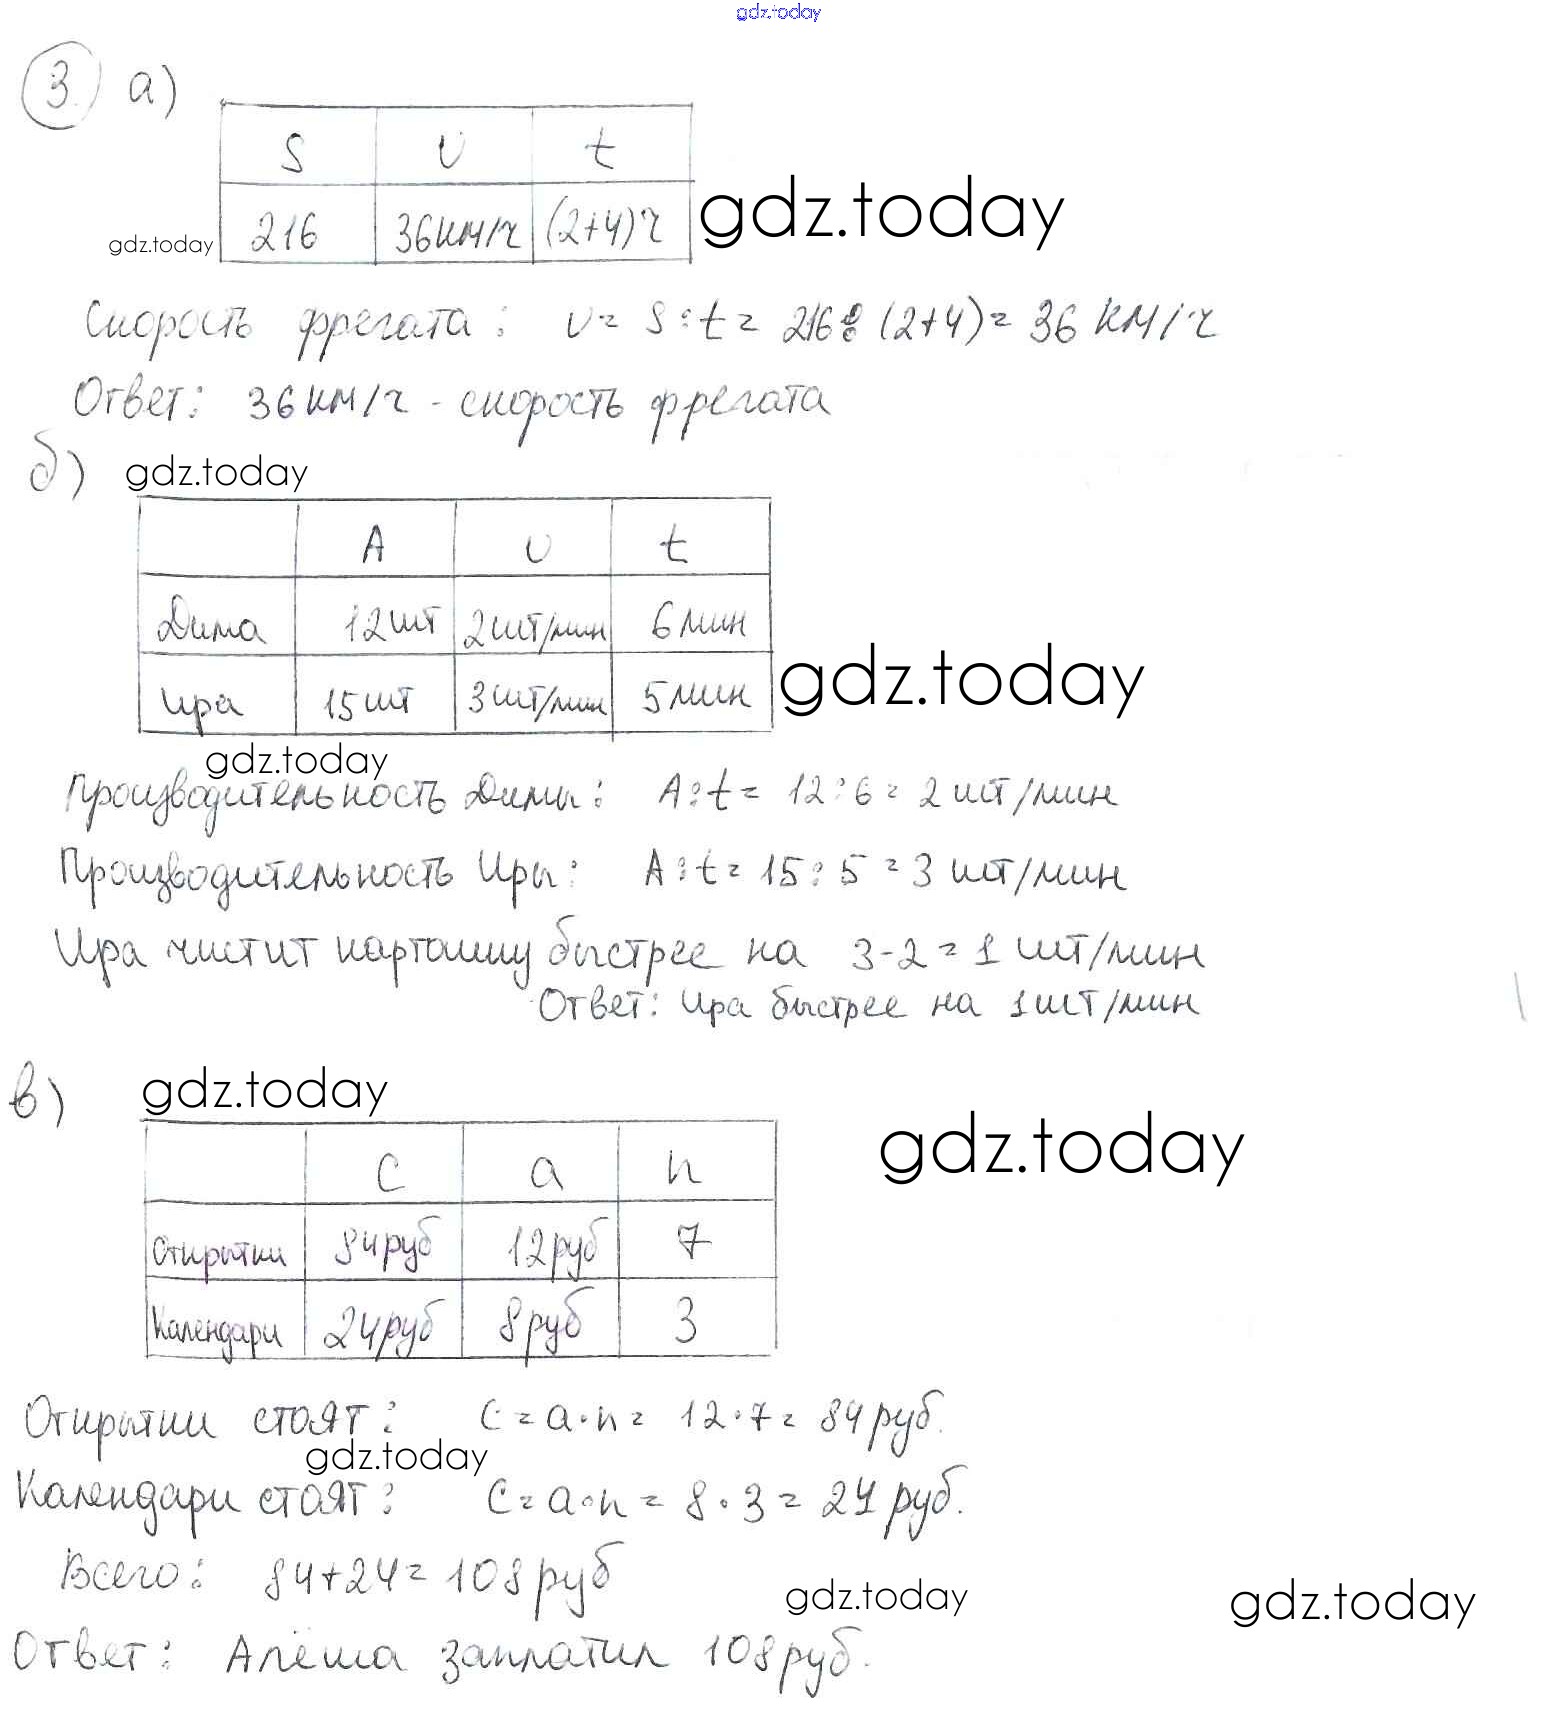 gdz.today
3. а)
S υ t
gdz.today 216 36км/ч (2+4)ч gdz.today
Скорость фрегата: υ = S:t = 216:(2+4) = 36 км/ч
Ответ: 36км/ч - скорость фрегата
б) gdz.today
A υ t
Дима 12шт 2шт/мин 6мин
Ира 15шт 3шт/мин 5мин gdz.today
gdz.today
Производительность Димы: A:t = 12:6 = 2 шт/мин
Производительность Иры: A:t = 15:5 = 3 шт/мин
Ира чистит картошку быстрее на 3-2 = 1 шт/мин
Ответ: Ира быстрее на 1шт/мин
в) gdz.today
C a n gdz.today
Открытки 84руб 12руб 7
Календари 24руб 8руб 3
Открытки стоят: C = a·n = 12·7 = 84руб.
gdz.today
Календари стоят: C = a·n = 8·3 = 24 руб.
Всего: 84+24 = 108руб
gdz.today gdz.today
Ответ: Алёша заплатил 108руб.